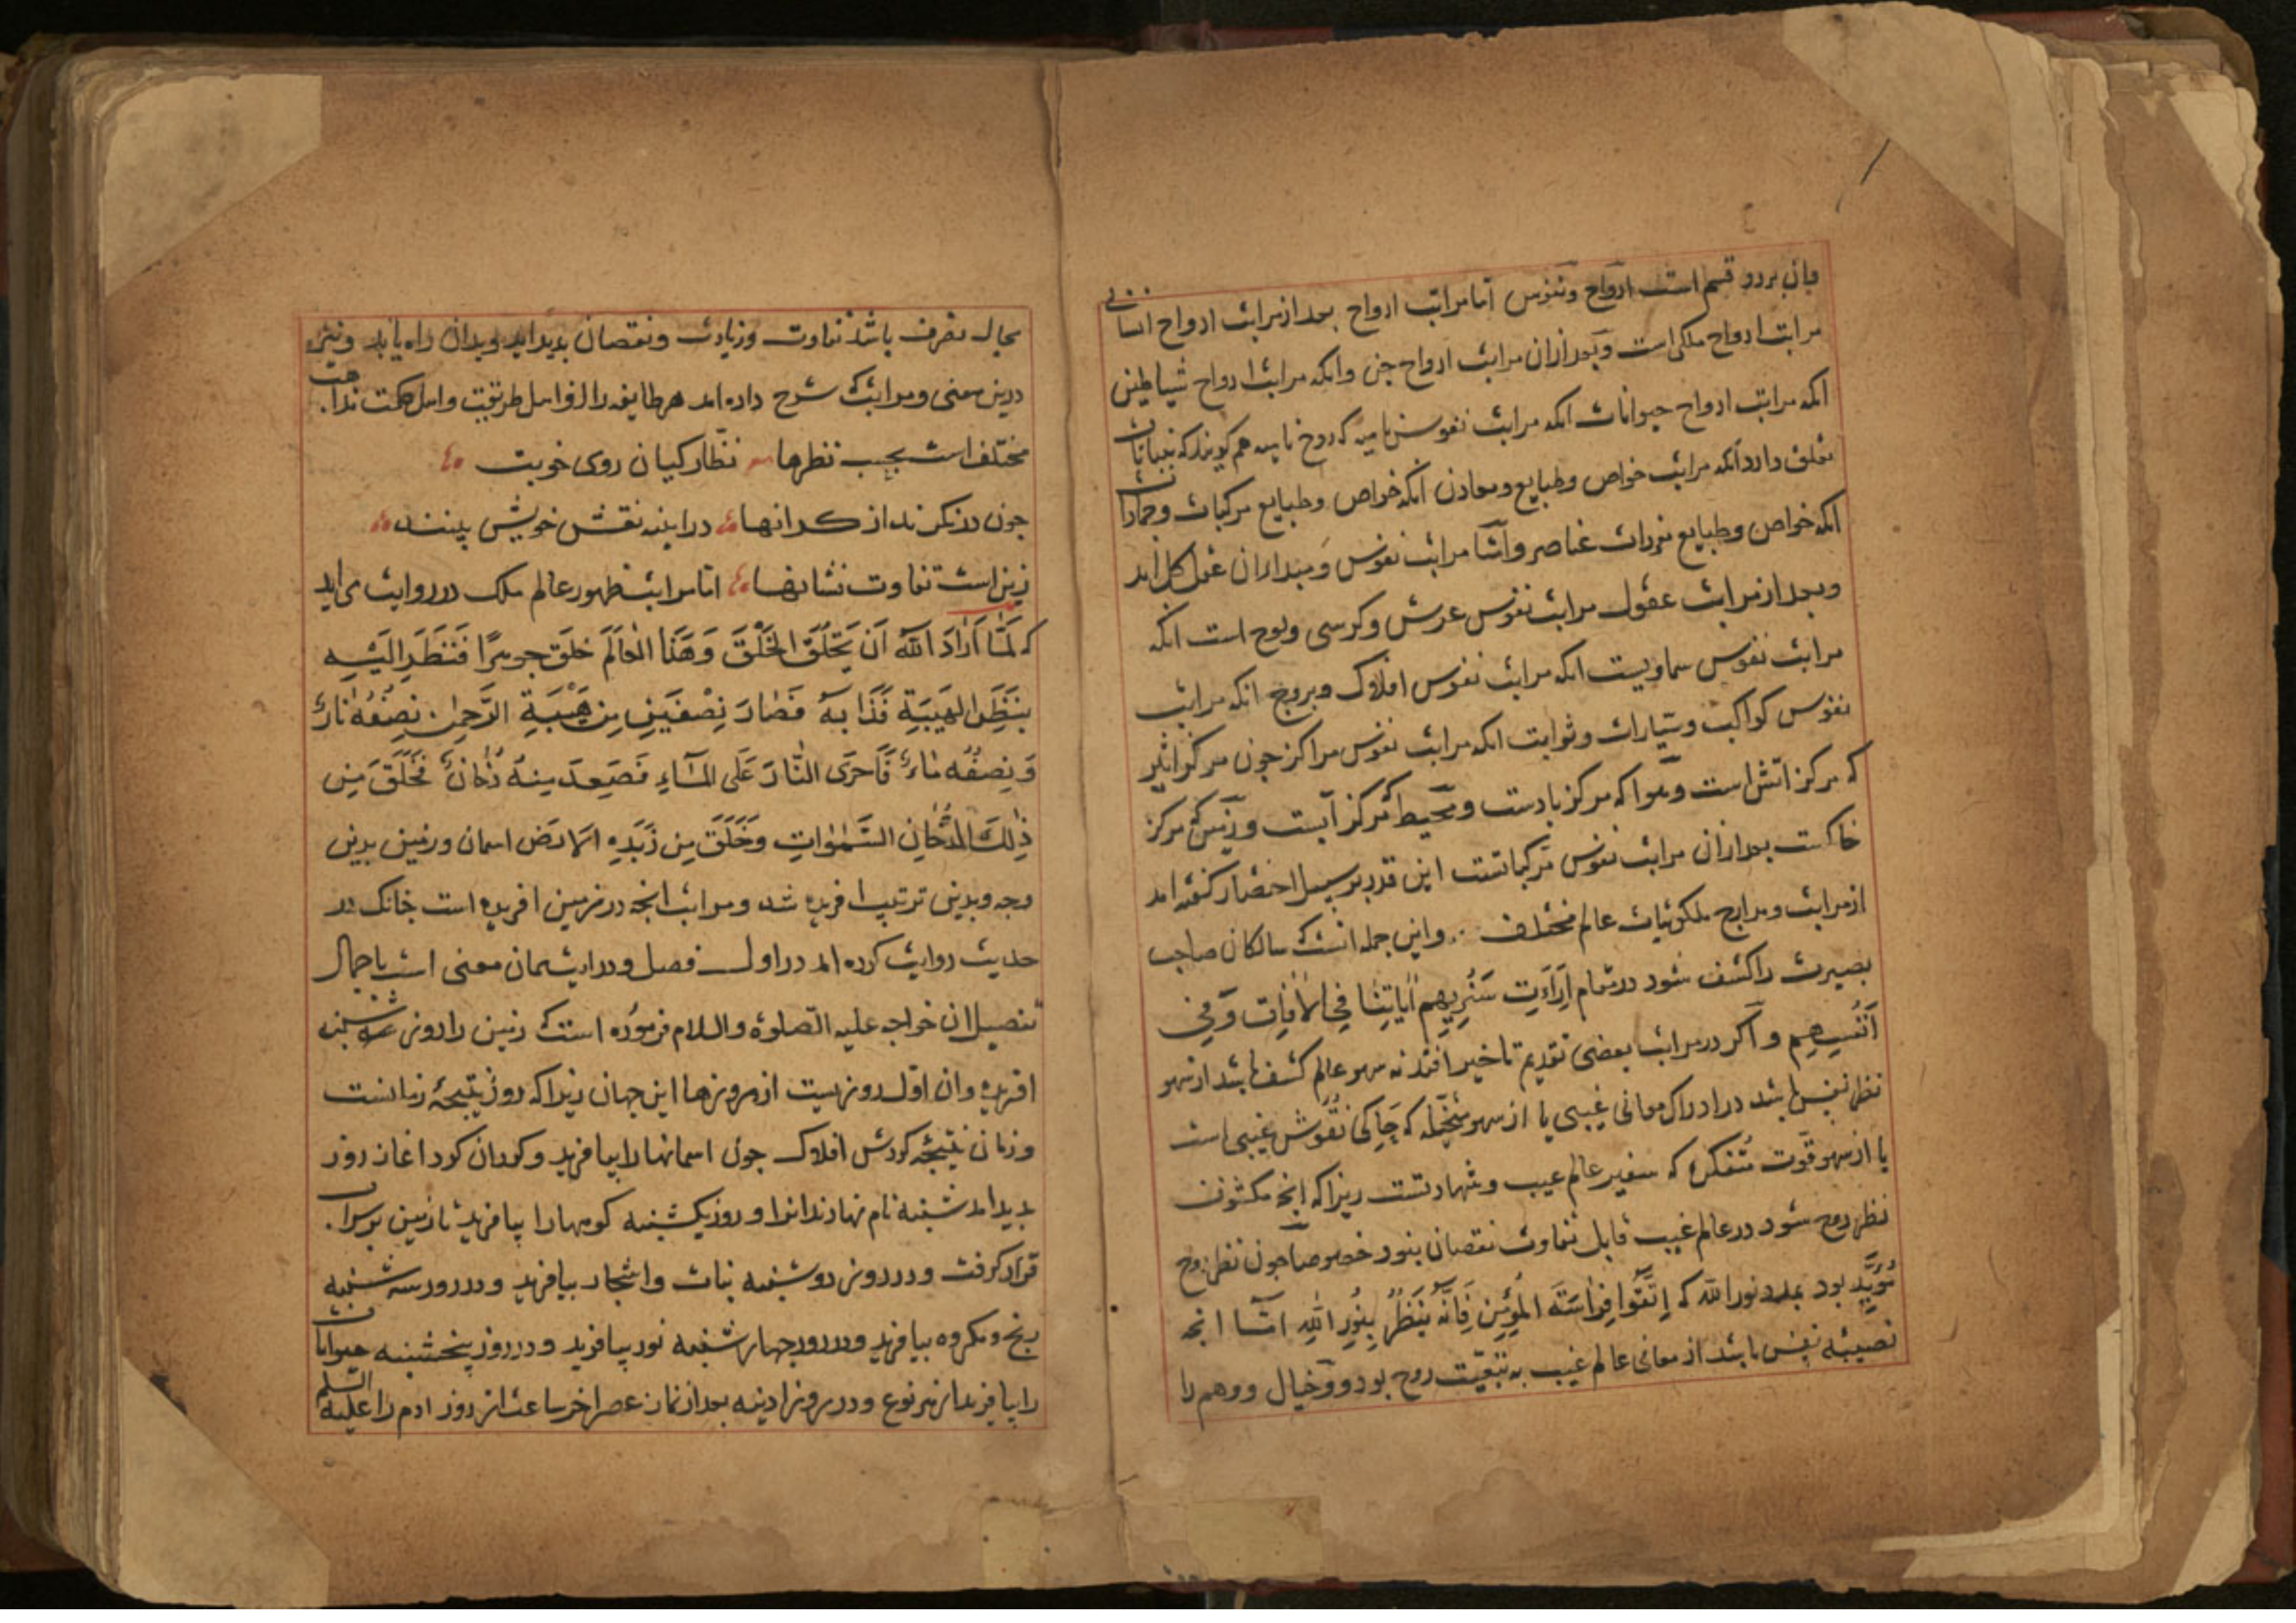 وان بر دو قسم است ارواح و نفوس اما مراتب ارواح بعد از مراتب ارواح انسانی
مراتب ارواح ملکی است و بعد ازان مراتب ارواح جن وانکه مراتب ارواح شیاطین
انکه مراتب ارواح حیوانات انکه مراتب نفوس نامیه که روح نامیه هم کویند که بنباتات
تعلق دارد انکه مراتب خواص وطبایع ومعادن انکه خواص وطبایع مرکبات وجمادات
انکه خواص وطبایع مفردات عناصر واما مراتب نفوس ومبداء ان عقل کل اند
وبعد از مراتب عقول مراتب نفوس عرش وکرسی ولوح است انکه
مراتب نفوس سماویست انکه مراتب نفوس افلاک وبروج انکه مراتب
نفوس کواکب وسیارات وثوابت انکه مراتب نفوس مراکز جون مرکز اثیر
که مرکز اتش است وهوا که مرکز بادست ومحیط که مرکز آبست وزمین که مرکز
خاکست بعد ازان مراتب نفوس مرکباتست این قدر بر سبیل اختصار کفته امد
از مراتب ومدارج ملکوتیات عالم مختلف .. واین جمله انست که سالکان صاحب
بصیرت را کشف شود در مقام اراءت سَنُرِیهِم اٰیَاتِنَا فِی الاٰفَاقِ وَفِی
اَنْفُسِهِم واکر در مراتب بعضی تقدیم تاخیر افتد نه سهو عالم کشف باشد از سهو
نظر نفس باشد در ادراک معانی غیبی یا از سهو متخیّله که حاکی نقوش غیبی است
یا از سهو قوّت متفکره که سفیر عالم غیب وشهادتست زیرا که انجه مکشوف
نظر روح شود در عالم غیب قابل تفاوت نقصان نبود خصوصا جون نظر روح
مُؤیَّد بود بمدد نور الله که اِتَّقُوا فِرَاسَتَه المُؤمِنِ فَاِنَّهُ یَنظُرُ بِنُورِ اللهِ امّا انجه
نصیبه نفس باشد از معانی عالم غیب به تبعیّت روح بود و خیال و وهم را
مجال تصرف باشد تفاوت وزیادت ونقصان بدید اید وبدان راه یابد ونیز
درین معنی ومراتب که شرح داده امد هر طایفه را از اهل طریقت واهل حکمت مذاهب
مختلف است بحسب نظرها نظارکیان روی خوبت
جون در نکرند از کرانها در اینه نقش خویش بینند
زین است تفاوت نشانها اما مراتب ظهور عالم ملک در روایت می اید
که لَمَّا اَرَادَ اللهُ اَن یَخلُقَ الخَلْقَ وَهَذَا العَالَمَ خَلَقَ جوهرًا فَنَظَرَ اِلَیهِ
بِنَظَرِ الهَیبَةِ فَذَابَهُ فَصَارَ نِصْفَینِ مِن هَیْبَةِ الرَّحمٰنِ نِصْفُهُ نَارٌ
وَنِصفُهُ مَاءٌ فَاَجرَی النَّارَ عَلَی المَاءِ فَصَعِدَ مِنهُ دُخَانٌ فَخَلَقَ مِن
ذٰلِكَ الدُّخَانِ السَّمٰوٰاتِ وَخَلَقَ مِن زَبَدِهِ الاَرضَ اسمان وزمین بدین
وجه وبدین ترتیب افریده شد ومراتب انجه در زمین افریده است جانک در
حدیث روایت کرده اند در اول فصل ودر ایت همان معنی است باجمال
تفصیل ان خواجه علیه الصلوة والسلام فرموده است که زمین را روز شنبه
افریده وان اوّل روزیست از روزها این جهان زیرا که روز نتیجهٔ زمانست
وزمان نتیجهٔ کردش افلاک جون اسمانها را بیافرید وکردان کرد اغاز روز
بدید امد شنبه نام نهادند انرا وروز یکشنبه کوهها را بیافرید تا زمین بران
قرار کرفت ودر روز دوشنبه نبات واشجار بیافرید ودر روز سه شنبه
رنج ومکروه بیافرید ودر روز جهارشنبه نور بیافرید ودر روز پنجشنبه حیوانات
را بیافرید از هر نوع ودر روز ادینه بعد از نماز عصر اخر ساعت از روز ادم را علیه السلم